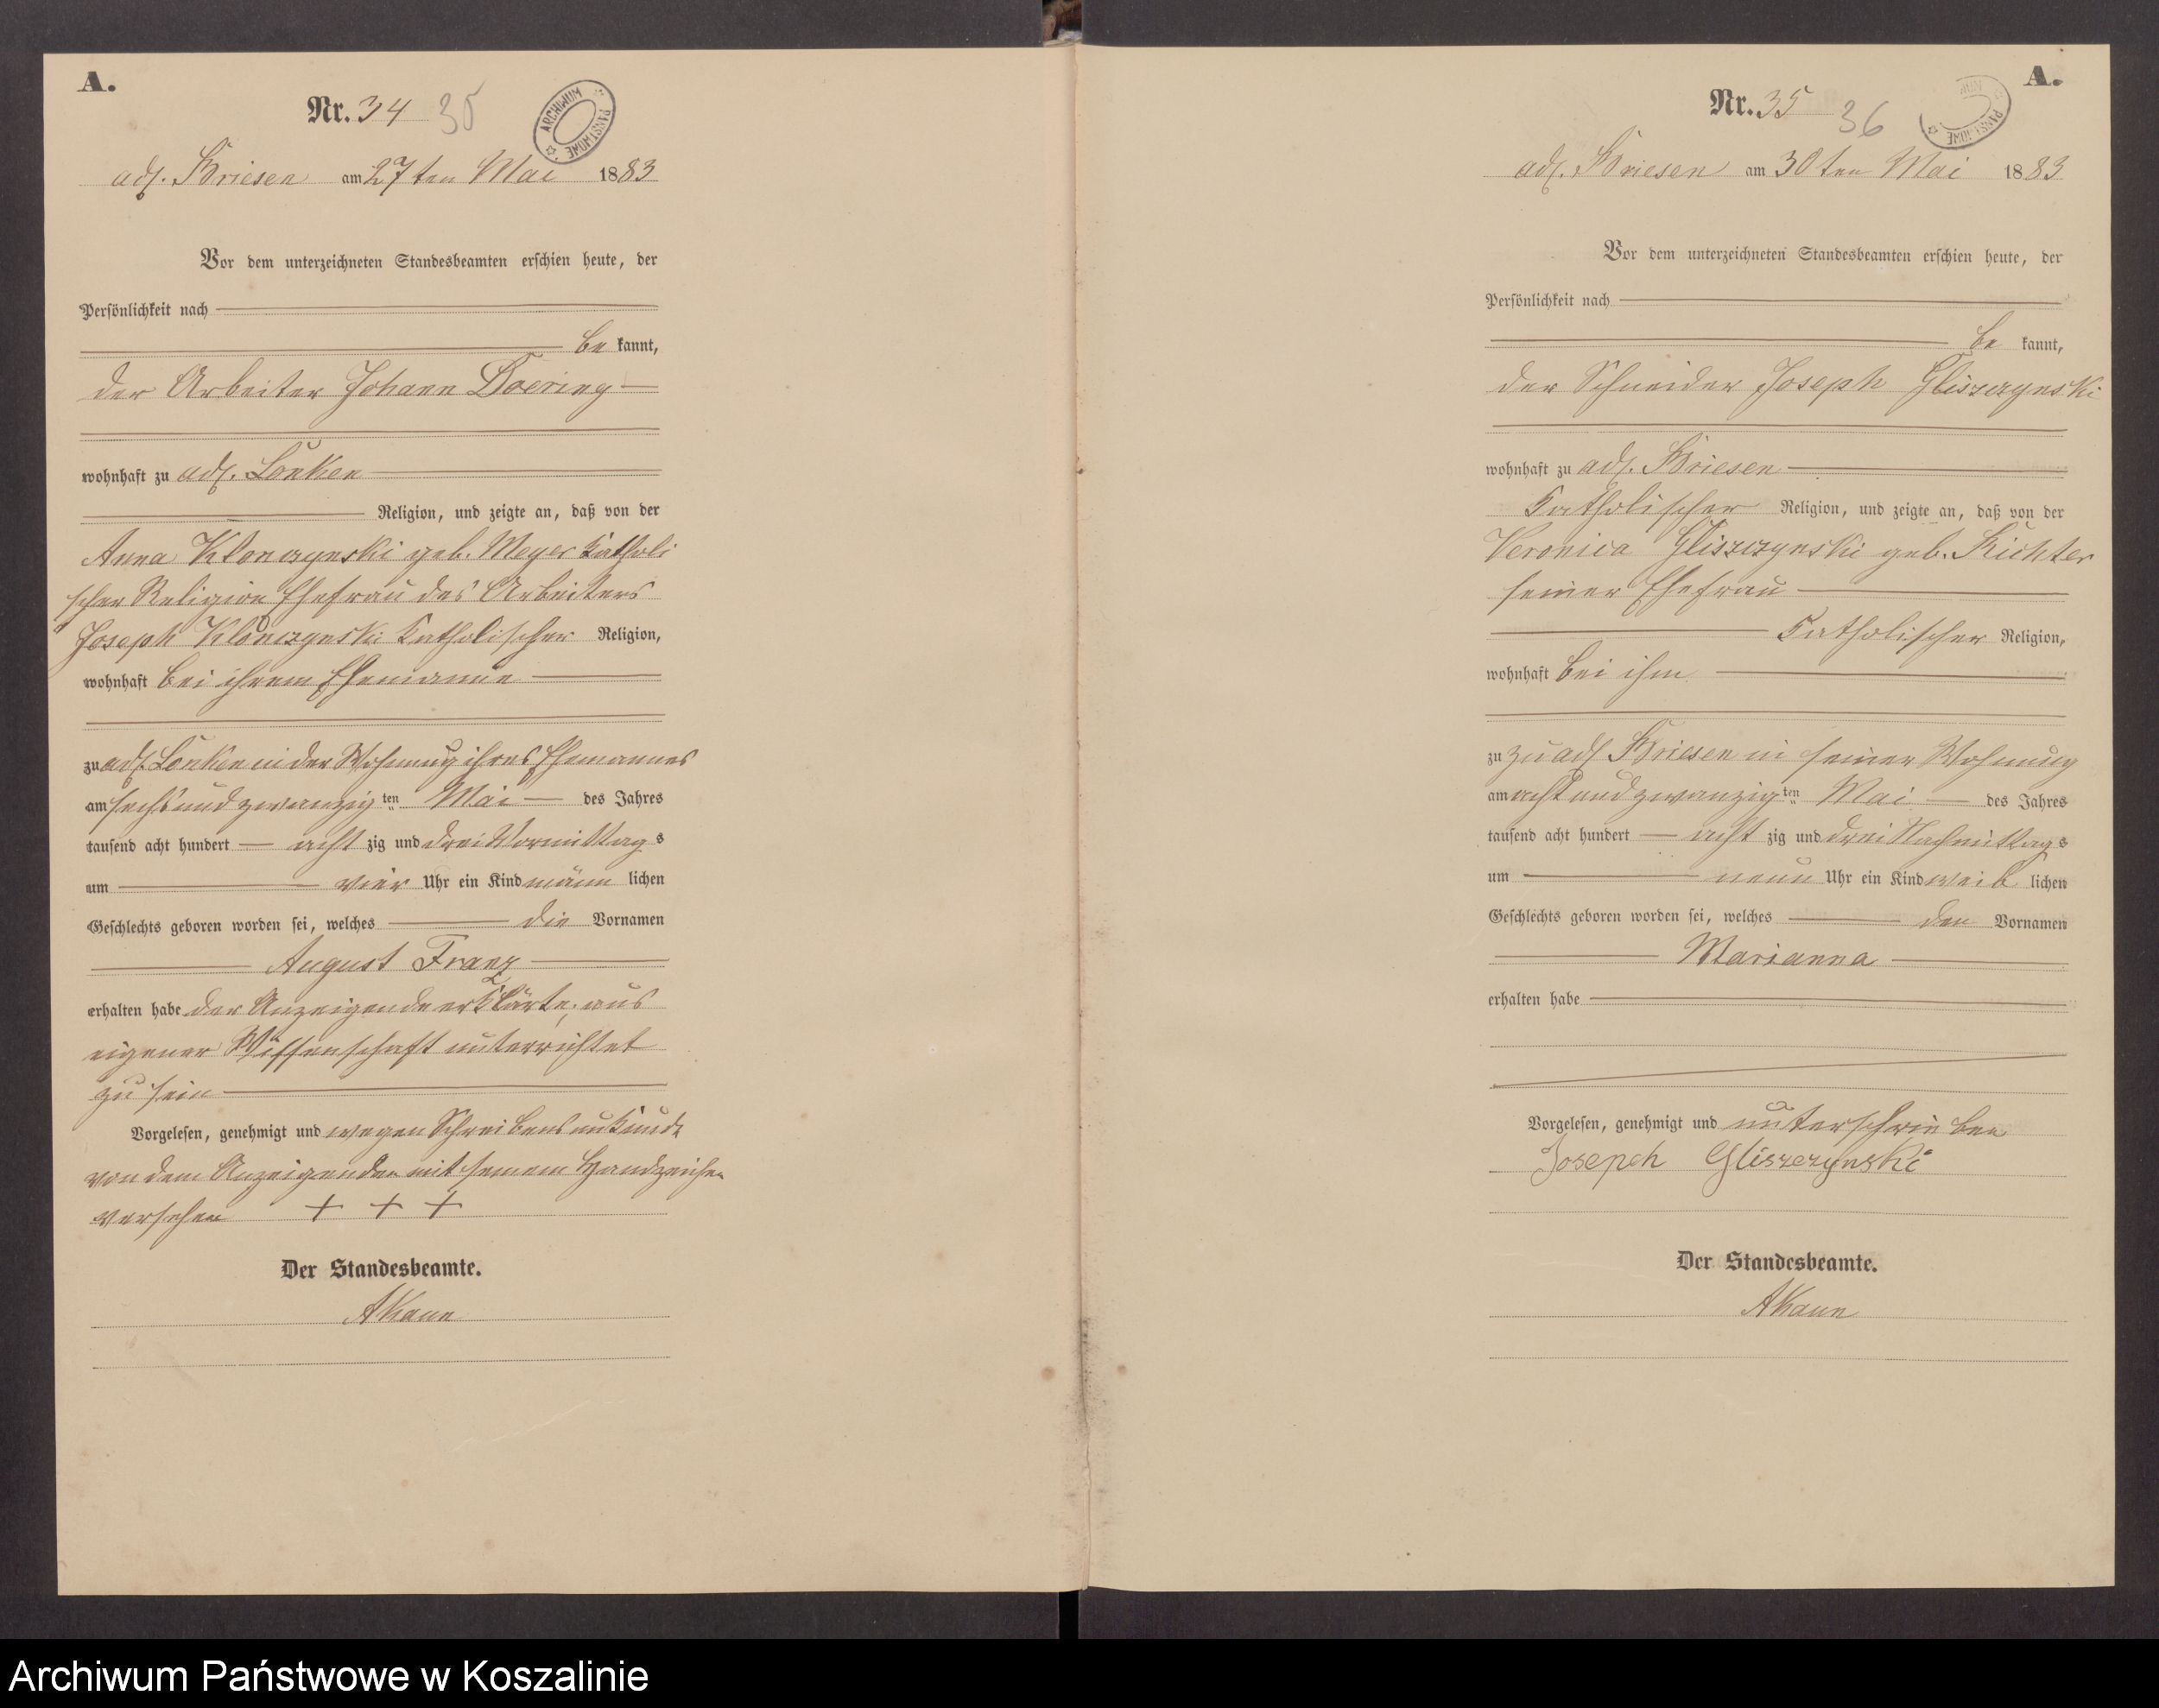 A.
Nr. 34 35
ARCHIWUM PAŃSTWOWE
adl. Briesen am 27ten Mai 1883
Vor dem unterzeichneten Standesbeamten erschien heute, der
Persönlichkeit nach
be kannt,
der Arbeiter Johann Doering
wohnhaft zu adl. Lonken
Religion, und zeigte an, daß von der
Anna Klonczynski geb. Meyer katholi
scher Religion Ehefrau des Arbeiters
Joseph Klonczynski katholischer Religion,
wohnhaft bei ihrem Ehemanne
zu adl. Lonken in der Wohnung ihres Ehemannes
am sechsundzwanzig ten Mai des Jahres
tausend acht hundert acht zig und drei Vormittags
um vier Uhr ein Kind männ lichen
Geschlechts geboren worden sei, welches die Vornamen
August Franz
erhalten habe der Anzeigende erklärte, aus
eigener Wissenschaft unterrichtet
zu sein
Vorgelesen, genehmigt und wegen Schreibensunkunde
von dem Anzeigenden mit seinem Handzeichen
versehen + + +
Der Standesbeamte.
A Kann
A.
Nr. 35 36
PAŃSTWOWE
adl. Briesen am 30ten Mai 1883
Vor dem unterzeichneten Standesbeamten erschien heute, der
Persönlichkeit nach
be kannt,
der Schneider Joseph Gliszczynski
wohnhaft zu adl. Briesen
katholischer Religion, und zeigte an, daß von der
Veronica Gliszczynski geb. Richter
seiner Ehefrau
katholischer Religion,
wohnhaft bei ihm
zu zu adl Briesen in seiner Wohnung
am achtundzwanzig ten Mai des Jahres
tausend acht hundert acht zig und drei Nachmittags
um neun Uhr ein Kind weib lichen
Geschlechts geboren worden sei, welches den Vornamen
Marianna
erhalten habe
Vorgelesen, genehmigt und unterschrieben
Josepch Gliszczynski
Der Standesbeamte.
A Kann
Archiwum Państwowe w Koszalinie